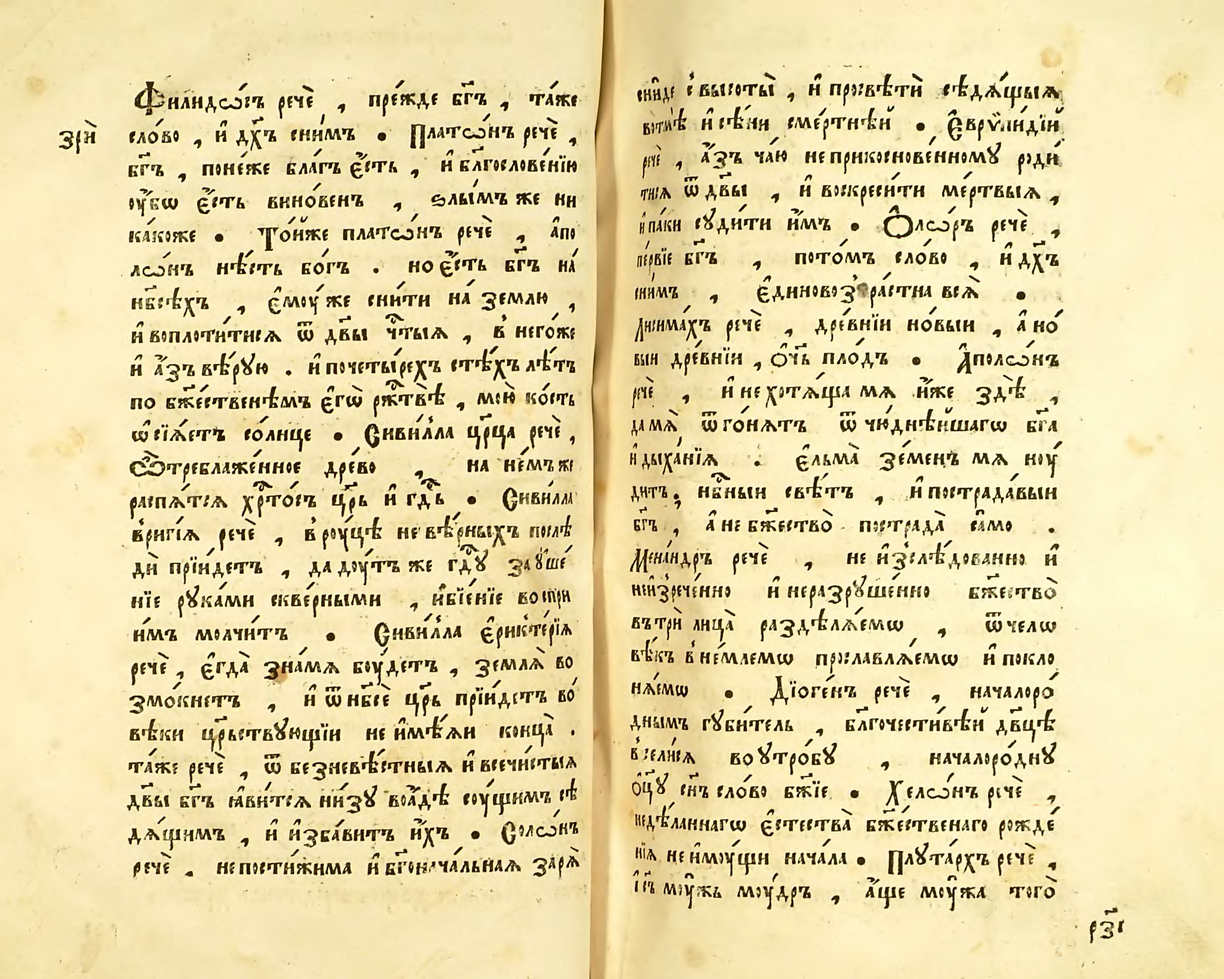 Филидѡ́съ речѐ , пре́жде бг҃ъ , та́же
зрѝ
сло́во , и҆ дх҃ъ сни́мъ . Платѡ́нъ речѐ ,
бг҃ъ , поне́же бла́гъ є҆́сть , и҆ бл҃гослове́нїю
оу҆́бѡ є҆́сть вино́венъ , ѕлы́мъ же ни
ка́коже . То́йже платѡ́нъ речѐ , апо
лѡ́нъ нѣ́сть бо́гъ . но є҆́сть бг҃ъ на́
нб҃сѣ́хъ , є҆мꙋ́же сни́ти на́ землю ,
и҆ воплоти́тися ѿ дв҃ы чⷭ҇тыѧ , в̾ него́же
и҆ а҆́зъ вѣ́рꙋю . и҆ почеты́рехъ стѣ́хъ лѣ́тъ
по бж҃е́ственѣмъ є҆гѡ̀ рж҃твѣ̀ , мою̀ ко́сть
ѡ҆сїѧ́етъ со́лнце . Сиви́лла цр҃ца речѐ ,
Ѽтреблаже́нное дре́во , на не́мъже
распѧ́тсѧ хрⷭ҇то́съ цр҃ь и҆ гдⷭ҇ь . Сиви́лла
в̾риги́ѧ речѐ , в̾ рꙋ́цѣ невѣ́рныхъ послѣ
дѝ прїи́детъ , дадꙋ́тъ же гдⷭ҇ꙋ заꙋше́
нїе рꙋка́ми скве́рными , и҆ бїе́нїе воспри
и́мъ молчи́тъ . Сиви́лла є҆рикте́рїѧ
речѐ , є҆гда̀ зна́мѧ бꙋ́детъ , землѧ̀ во
змо́кнетъ , и҆ ѿ нб҃сѐ цр҃ь прїи́детъ во́
вѣ́ки цр҃ьствꙋющїи не и҆мѣ́ѧи конца̀ .
та́же речѐ , ѿ безневѣ́стныѧ и҆ всечи́стыѧ
дв҃ы бг҃ъ ꙗ҆ви́тсѧ ни́зꙋ во а҆́дѣ сꙋ́щимъ сѣ
дѧ́щимъ , и҆ и҆зба́витъ и҆́хъ . Солѡ́нъ
речѐ . непостижи́ма и҆ бг҃онача́льнаѧ зарѧ̀
сни́де с̾ высоты̀ , и҆ просвѣти́ти сѣдѧ́щыѧ
вотмѣ̀ и҆ сѣ́ни сме́ртнѣй . Є҆врѵли́дїй
речѐ , а҆́зъ ча́ю неприкоснове́нномꙋ роди́
тисѧ ѿ дв҃ы , и҆ воскреси́ти ме́ртвыѧ ,
и҆ па́ки сꙋди́ти и҆̀мъ . Ѻ҆лѡ́ръ речѐ ,
пе́рвїе бг҃ъ , пото́мъ сло́во , и҆ дх҃ъ
сни́мъ , є҆диновоз̾растна всѧ̀ .
Лисима́хъ речѐ , дре́внїи но́выи , а҆ но́
выи дре́внїи , ѻч҃ь пло́дъ . А҆полѡ́нъ
речѐ , и҆ не хотѧ́ща мѧ и҆́же здѣ̀ ,
да мѧ̀ ѿго́нѧтъ ѿ чюднѣ́йшагѡ бг҃а
и҆ дыха́нїѧ . є҆льма̀ зе́менъ мѧ нꙋ́
дитъ , нбⷭ҇ныи свѣ́тъ , и҆ пострада́выи
бг҃ъ , а҆ не бж҃ество̀ пострада̀ само .
Мена́ндръ речѐ , не и҆зслѣ́дованно и҆
неи҆зрече́нно и҆ неразрꙋше́нно бж҃ество̀
въ трѝ лица̀ раздѣлѧ́емѡ , ѿ челѡ
вѣ́къ внемлемѡ прославлѧ́емѡ и҆ покло
нѧ́емѡ . Дїоге́нъ речѐ , началоро́
днымъ гꙋби́тель , бл҃гочести́вѣй дв҃цѣ
в̾сели́сѧ во ꙋтро́бꙋ , началоро́днꙋ
ѻц҃ꙋ сн҃ъ сло́во бж҃їе . Хелѡ́нъ речѐ ,
недѣ́ланнагѡ є҆стества̀ бж҃е́ственаго рожде́
нїѧ не и҆мꙋ́щи нача́ла . Плꙋта́рхъ речѐ ,
мꙋ́жь мꙋ́др , а҆́ще мꙋ́жа того̀